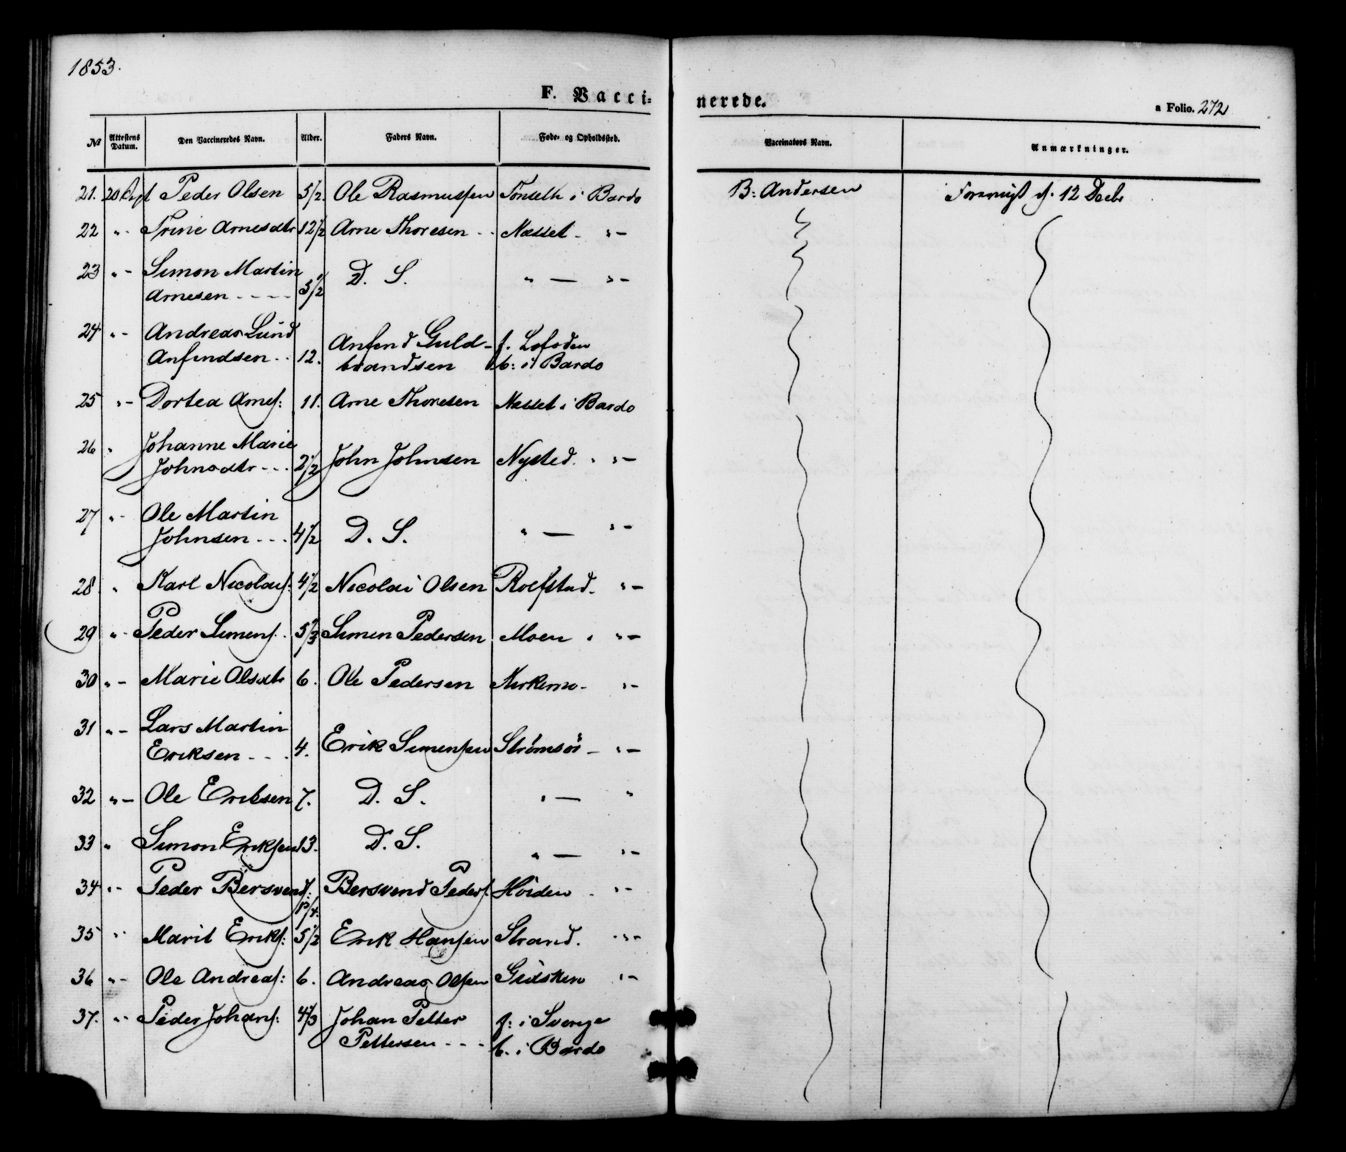 1853.
F. Vaccinerede.
a Folio. 272
No Attestens Datum. Den Vaccineredes Navn. Alder. Faders Navn. Føde- og Opholdssted. Vaccinators Navn. Anmærkninger.
21. 20 Peder Olsen 5/2. Ole Rasmussen Tonseth i Bardo B: Andersen 12 Decbr
22 " - Trine Arnesdtr 12/2 Arne Thoresen - - Næsset - " -
23 " - Simon Martin
Arnesen - - - - 3/2 D. S. " — " -
24 " - Andreas Lund
Anfindsen - - 12. Anfind Guld-
brandsen f. Lofoden
b: i Bardo
25 " - Dortea Arnes: 11. Arne Thoresen Næsset i Bardo
26 " Johanne Marie
Johnsdtr - - - 2/2 John Johnsen Nysted. " " -
27 " - Ole Martin
Johnsen - - - 4/2 D. S. " — " -
28 " Karl Nicolais: 4/2 Nicolai Olsen Rolfstad - " -
29 " - Peder Simens: 5/3 Simen Pedersen Moen " " -
30 " - Marie Olsdtr 6. Ole Pedersen Kirkemo - " -
31 " - Lars Martin
Eriksen - - - 4. Erik Simensen Strømsør - " -
32 " - Ole Eriksen 7. D. S. " — "
33 " Simon Eriksen 13. D. S. " — " -
34 " - Peder Bersvend: /4. Bersvend Peders: Høiden - " -
35 " Marit Eriks: 5/2 Erik Hansen Strand. " -
36 " - Ole Andreas: 6. Andreas Olsen Gidsken " -
37. " - Peder Johans: 4/3 Johan Petter
Pettersen - - - f: i Sverige
b. i Bardo